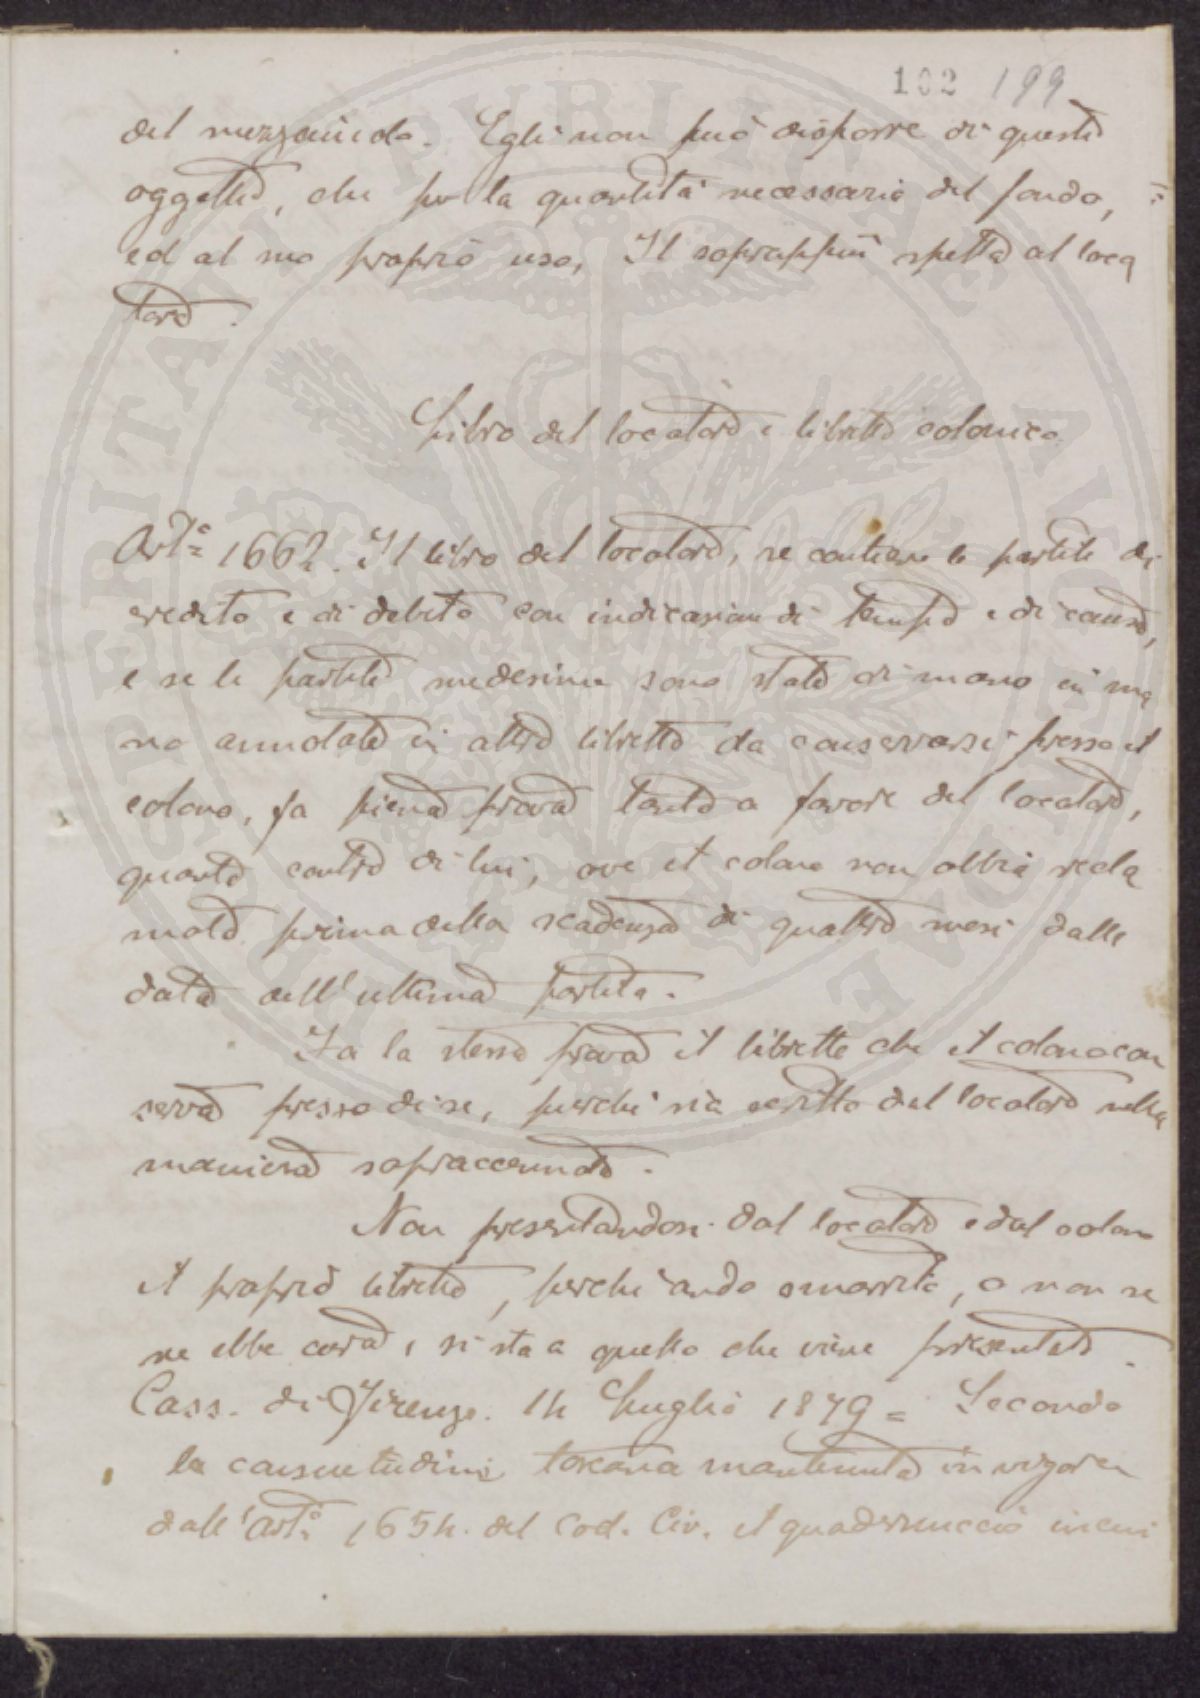 102 199
del mezzaiuolo. Egli non può disporre di questi
oggetti, che per la quantità necessaria del fondo,
ed al suo proprio uso, Il soprappiù spetta al loca
tore.
Libro del locatore e libretto colonico
Art.º 1662. Il libro del locatore, se contiene le partite di
credito e di debito con indicazion di tempo e di causa,
e se le partite medesime sono state di mano in ma
no annotate in altro libretto da conservarsi presso il
colono, fa piena prova tanto a favore del locatore,
quanto contro di lui, ove il colono non abbia recla
mato prima della scadenza di quattro mesi dalla
data dell'ultima partita.
Fa la stessa prova il libretto che il colono con
serva presso di se, perchè sia scritto dal locatore nella
maniera sopraccennata.
Non presentandosi dal locatore o dal colono
il proprio libretto, perchè andò smarrito, o non se
ne ebbe cura, si sta a quello che viene presentato.
Cass. di Firenze. 14 Luglio 1879 = Secondo
la consuetudine toscana mantenuta in vigore
dall'Art.º 1654. del Cod. Civ. il quadernuccio in cui
PERITAVI PVBLICAE AVCTORITATE